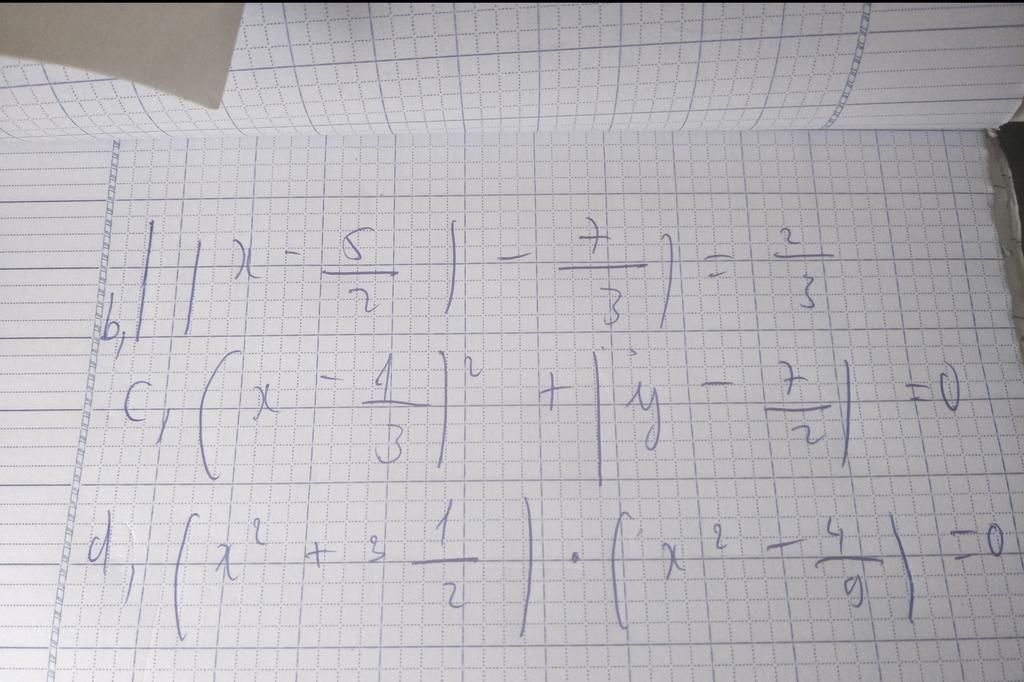 b, ||x - 5/2| - 7/3| = 2/3
c, (x - 1/3)² + |y - 7/2| = 0
d, (x² + 3 1/2) · (x² - 4/9) = 0